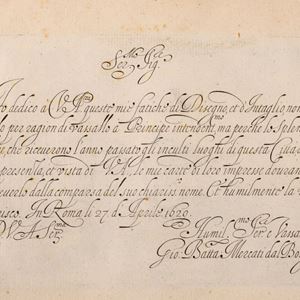 Ser.mo Sig.re
Io dedico à V.A. queste mie fatiche di Disegno, et d'Intaglio, non
per ragion di Vassallo à Principe intendentmo ma perche lo Splen
che riceuerono l'anno passato gli inculti luoghi di questa Città
presenza, et vista di V.A. le mie carte di loro impresse douran
dalla comparsa del suo chiariss.o nome. Et humilmente la
In Roma li 27. d'Aprile 1629.
D V A Ser.ma
Humil.mo Ser.re e Vassa
Gio: Batta Mercati dal Bor